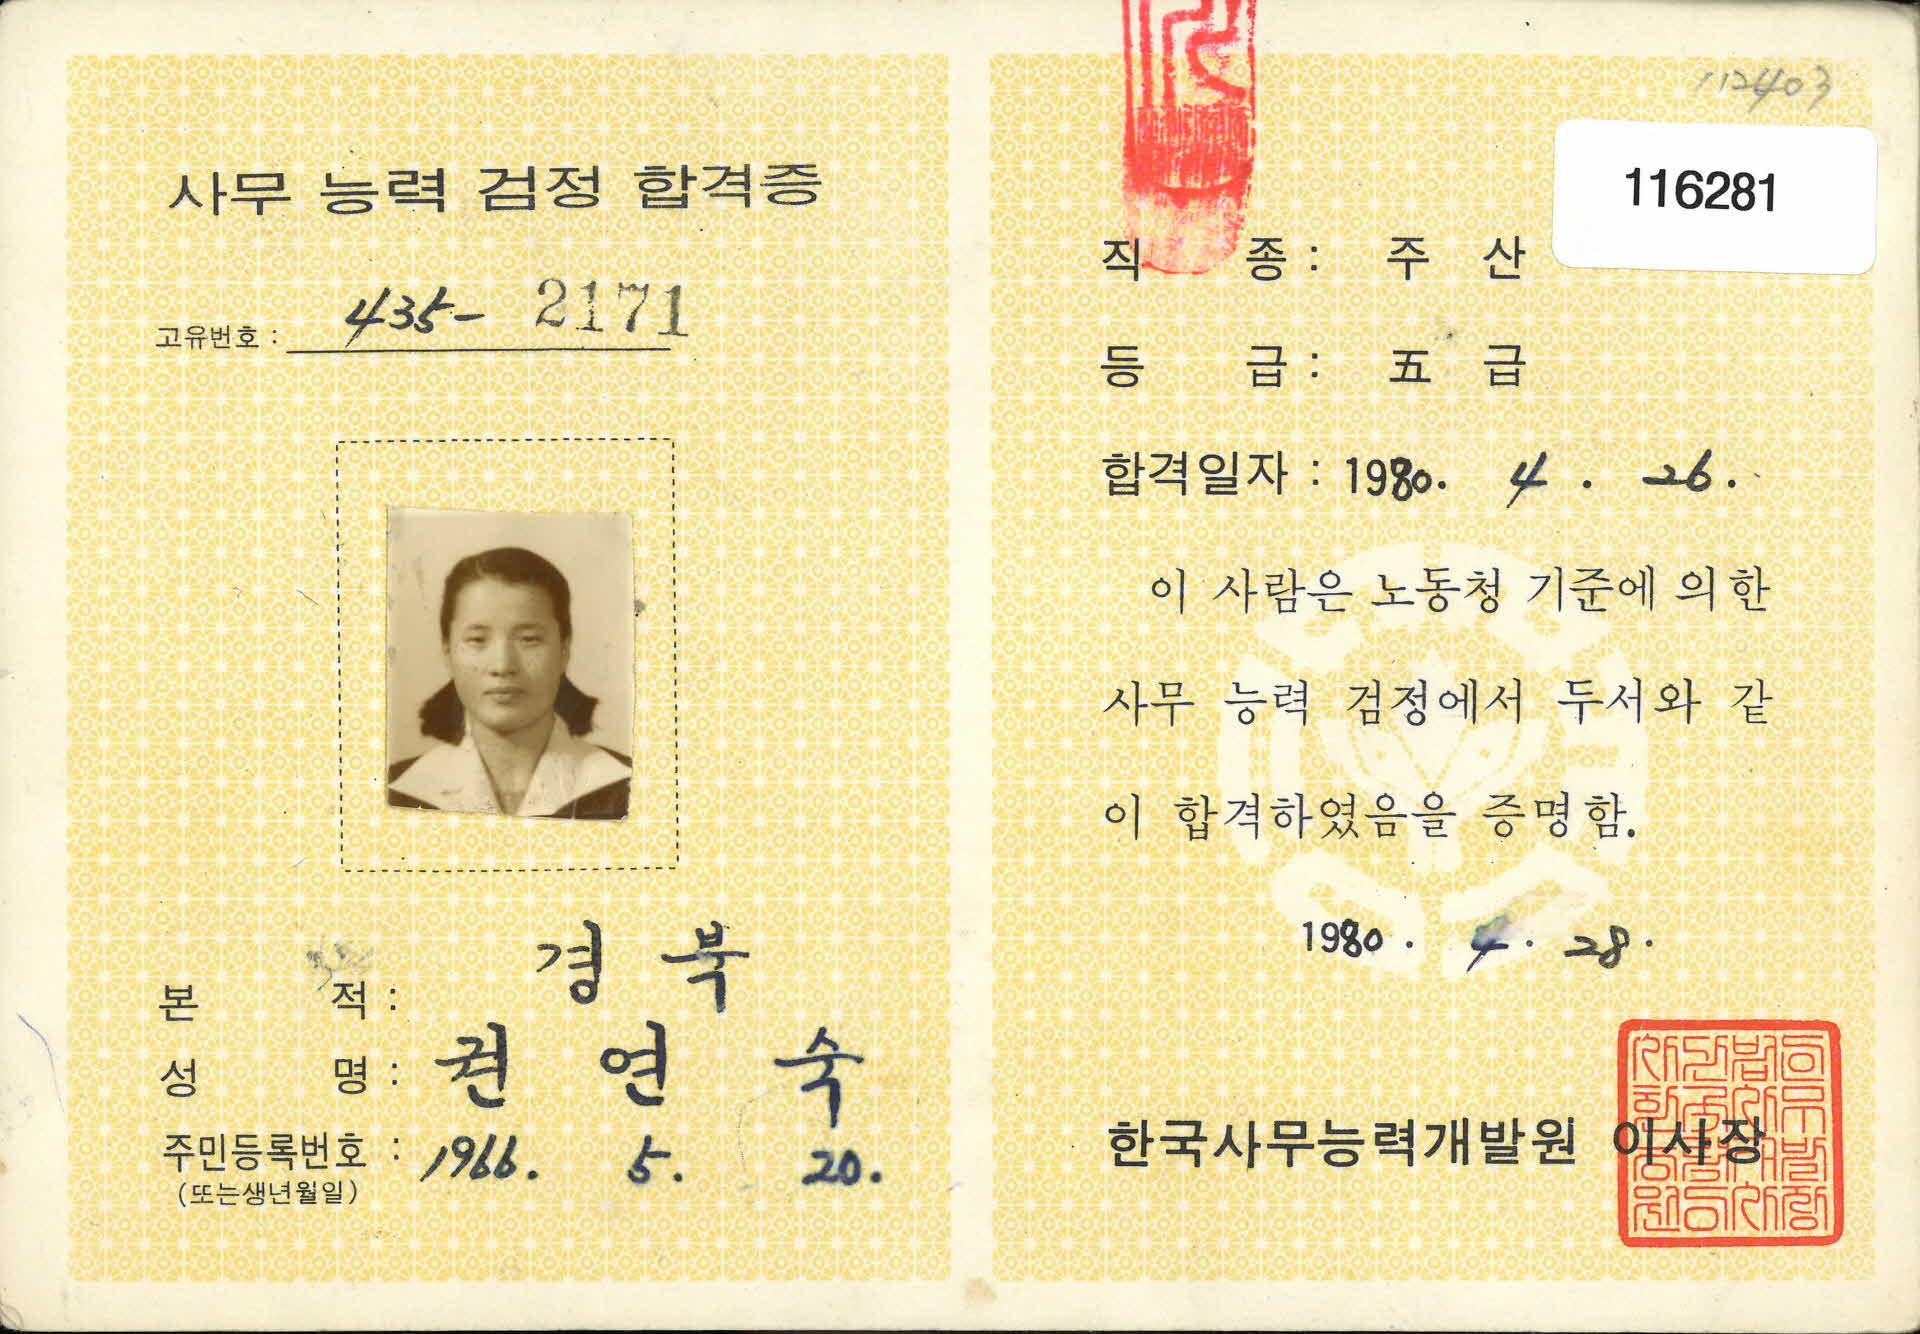 사무 능력 검정 합격증
고유번호 : 435- 2171
본 적 : 경 북
성 명 : 권 연 숙
주민등록번호 : 1966. 5. 20.
(또는생년월일)
112403
116281
직 종 : 주 산
등 급 : 五 급
합격일자 : 1980. 4 . 26.
이 사람은 노동청 기준에 의한
사무 능력 검정에서 두서와 같
이 합격하였음을 증명함.
1980 . 4 . 28 .
한국사무능력개발원 이사장